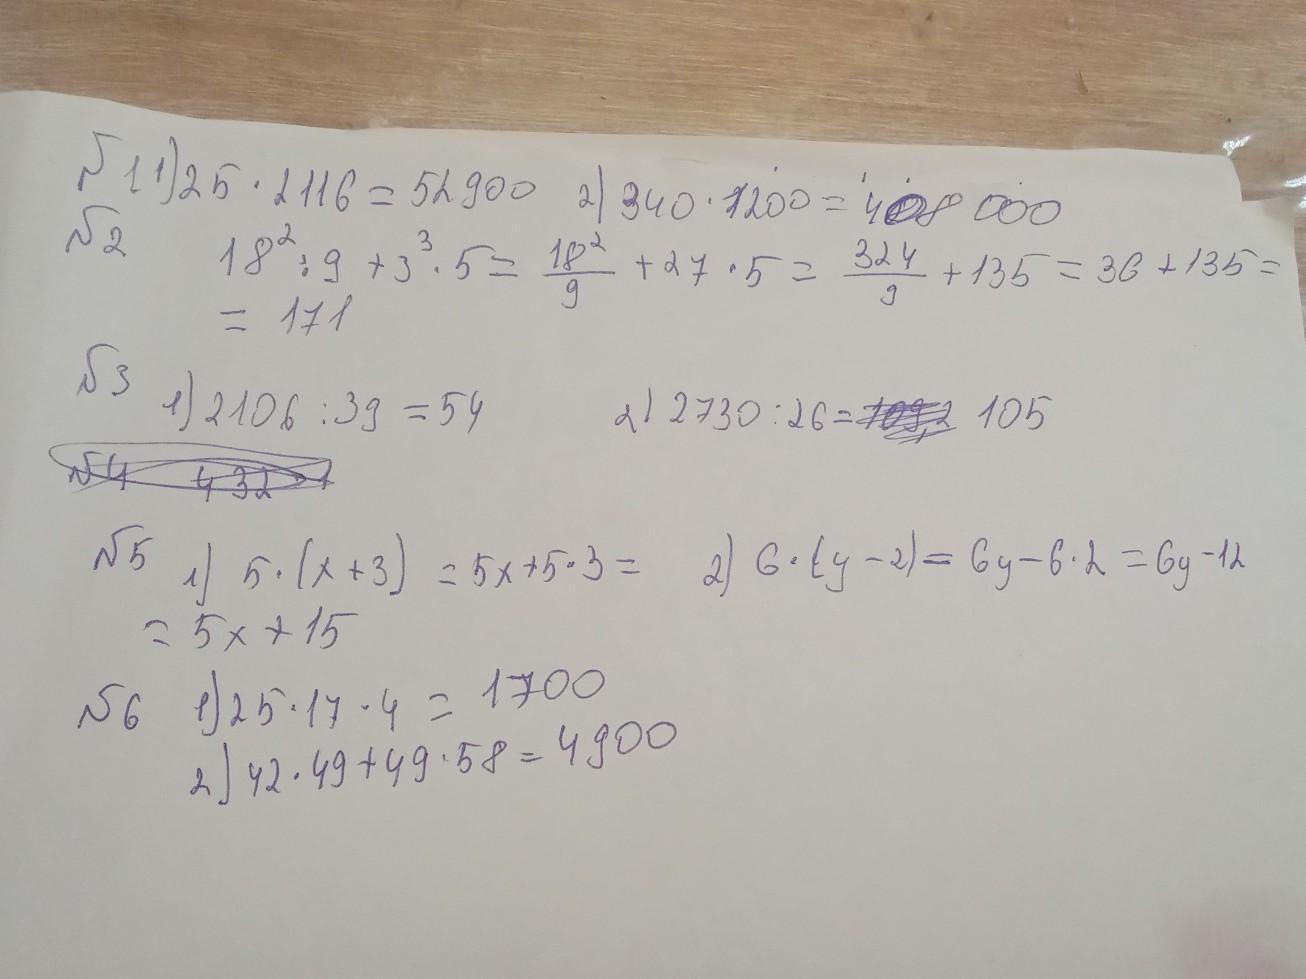 №1 1) 25 · 2116 = 52900 2) 340 · 1200 = 408 000
№2
18² : 9 + 3³ · 5 = 18²/9 + 27 · 5 = 324/9 + 135 = 36 + 135 =
= 171
№3
1) 2106 : 39 = 54 2) 2730 : 26 = 105
№4 432
№5 1) 5 · (x + 3) = 5x + 5 · 3 = 2) 6 · (y - 2) = 6y - 6 · 2 = 6y - 12
= 5x + 15
№6 1) 25 · 17 · 4 = 1700
2) 42 · 49 + 49 · 58 = 4900